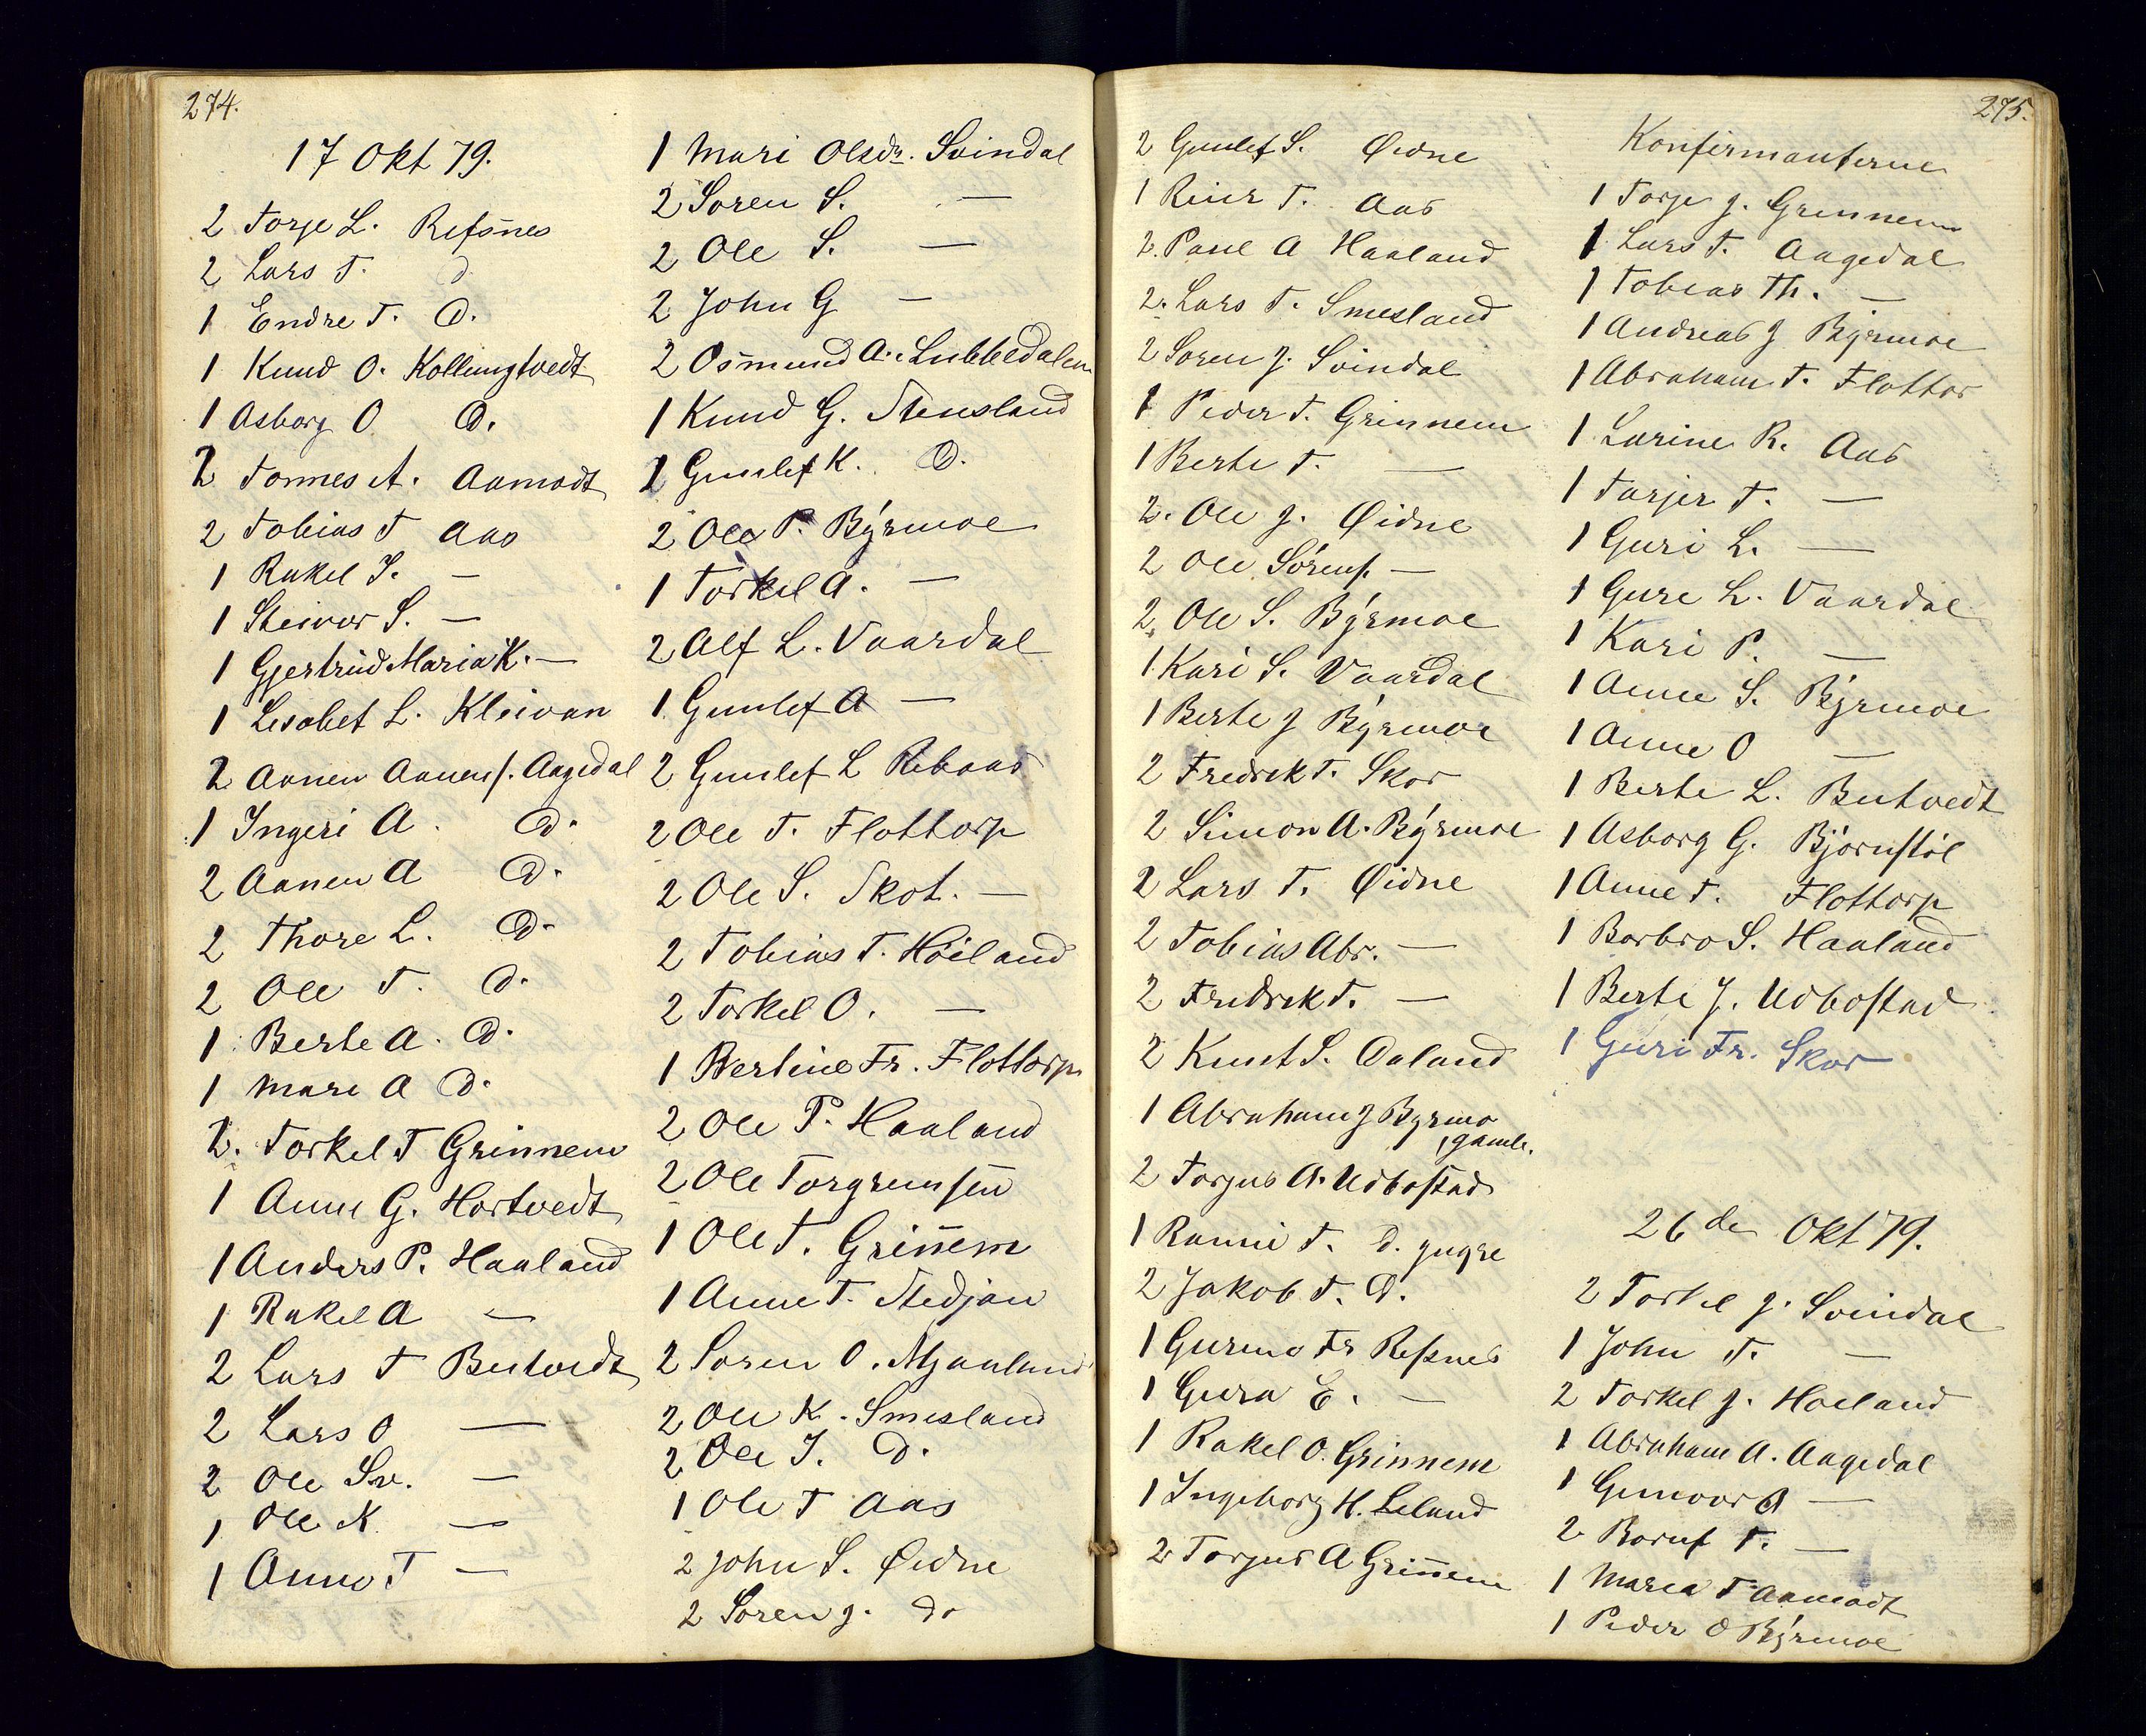 274.
17 Okt 79.
2 Torje L. Refsnes
2 Lars T. d
1 Endre T. D.
1 Knud O. Kollungtvedt
1 Asborg O D.
2 Tonnes A. Aamodt
2 Tobias T Aas
1 Rakel J. —
1 Steinor S. —
1 Gjertrud Maria K. —
1 Lisabet L. Kleivan
2 Aanen Aanens. Aagedal
1 Ingeri A. D.
2 Aanen A D.
2 Thore L. D.
2 Ole T. D.
1 Berte A. D.
1 Mari A D.
2. Torkel T Grinnem
1 Anne G. Hortvedt
1 Anders P. Haaland
1 Rakel A —
2 Lars T Butvedt
2 Lars O —
2 Ole Sv. —
1 Ole K —
1 Anne T —
1 Mari Olsdr. Svindal
2 Soren S. —
2 Ole S. —
2 John G —
2 Osmund A. Lubbedalen
1 Knud G. Stensland
1 Gunlef K. D.
2 Ole P. Býrmoe
1 Torkel A. —
2 Alf L. Vaardal
1 Gunlef A —
2 Gunlef L Rebaas
2 Ole T. Flottorp
2 Ole S. Skot. —
2 Tobias T. Höiland
2 Torkel O. —
1 Bertine Fr. Flottorp
2 Ole P. Haaland
2 Ole Torgrimsen
1 Ole T. Grin̄em
1 Anne T. Stedjan
2 Soren O. Mjaaland
2 Ole K. Smesland
2 Ole J. D.
1 Ole T Aas
2 John S. Øidne
2 Soren J. do
275.
2 Gunlef S. Øidne
1 Reier T. Aas
2. Paul A Haaland
2. Lars T. Smesland
2 Soren J. Svindal
1 Peder T. Grinnem
1 Berte T. —
2. Ole J. Øidne
2 Ole Sörens. —
2. Ole S. Býrmoe
1 Kari S. Vaardal
1 Berte J Býrmoe
2 Fredrek T. Skor
2 Simon A. Býrmoe
2 Lars T. Øidne
2 Tobias Abr. —
2 Fredrek T. —
2 Knut S. Aaland
1 Abraham J Byrmo
, gamle.
2 Torjus A. Udbostad
1 Ranni T. d. yngre
2 Jakob T. D.
1 Guruno Fr Refsnes
1 Gura E. —
1 Rakel O. Grinnem
1 Ingeborg H. Leland
2 Torjus A Grin̄em
Konfirmanterne
1 Torje J. Grinnem
1 Lars T. Aagedal
1 Tobias Th. —
1 Andreas J Býrmoe
1 Abraham T. Flottor
1 Lurine R. Aas
1 Tarjer T. —
1 Guri L. —
1 Gure L. Vaardal
1 Kari P. —
1 Anne S. Býrmoe
1 Anne O —
1 Berte L. Butvedt
1 Asborg G. Björnstöl
1 Anne T. Flottorp
1 Barbro S. Haaland
1 Berte J. Udbostad
1 Guri Fr. Skor
26de Okt 79.
2 Torkel J. Svindal
1 John T. —
2 Torkel J. Hoeland
1 Abraham A. Aagedal
1 Gunvor A —
2 Boruf T. —
1 Marea T Aamodt
1 Peder O Býrmoe